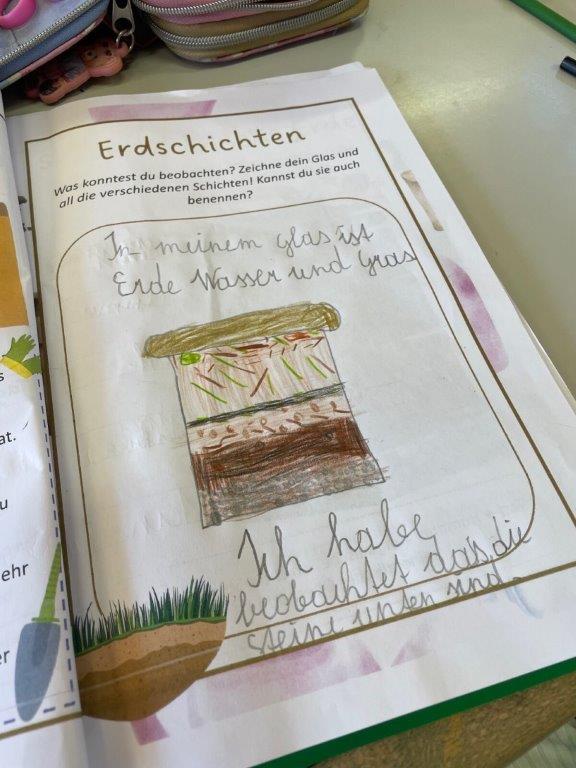 Erdschichten
Was konntest du beobachten? Zeichne dein Glas und
all die verschiedenen Schichten! Kannst du sie auch
benennen?
In meinem glas ist
Erde Wasser und Gras
Ich habe
beobachtet das die
steine unten sind.
s
at.
u
ehr
er